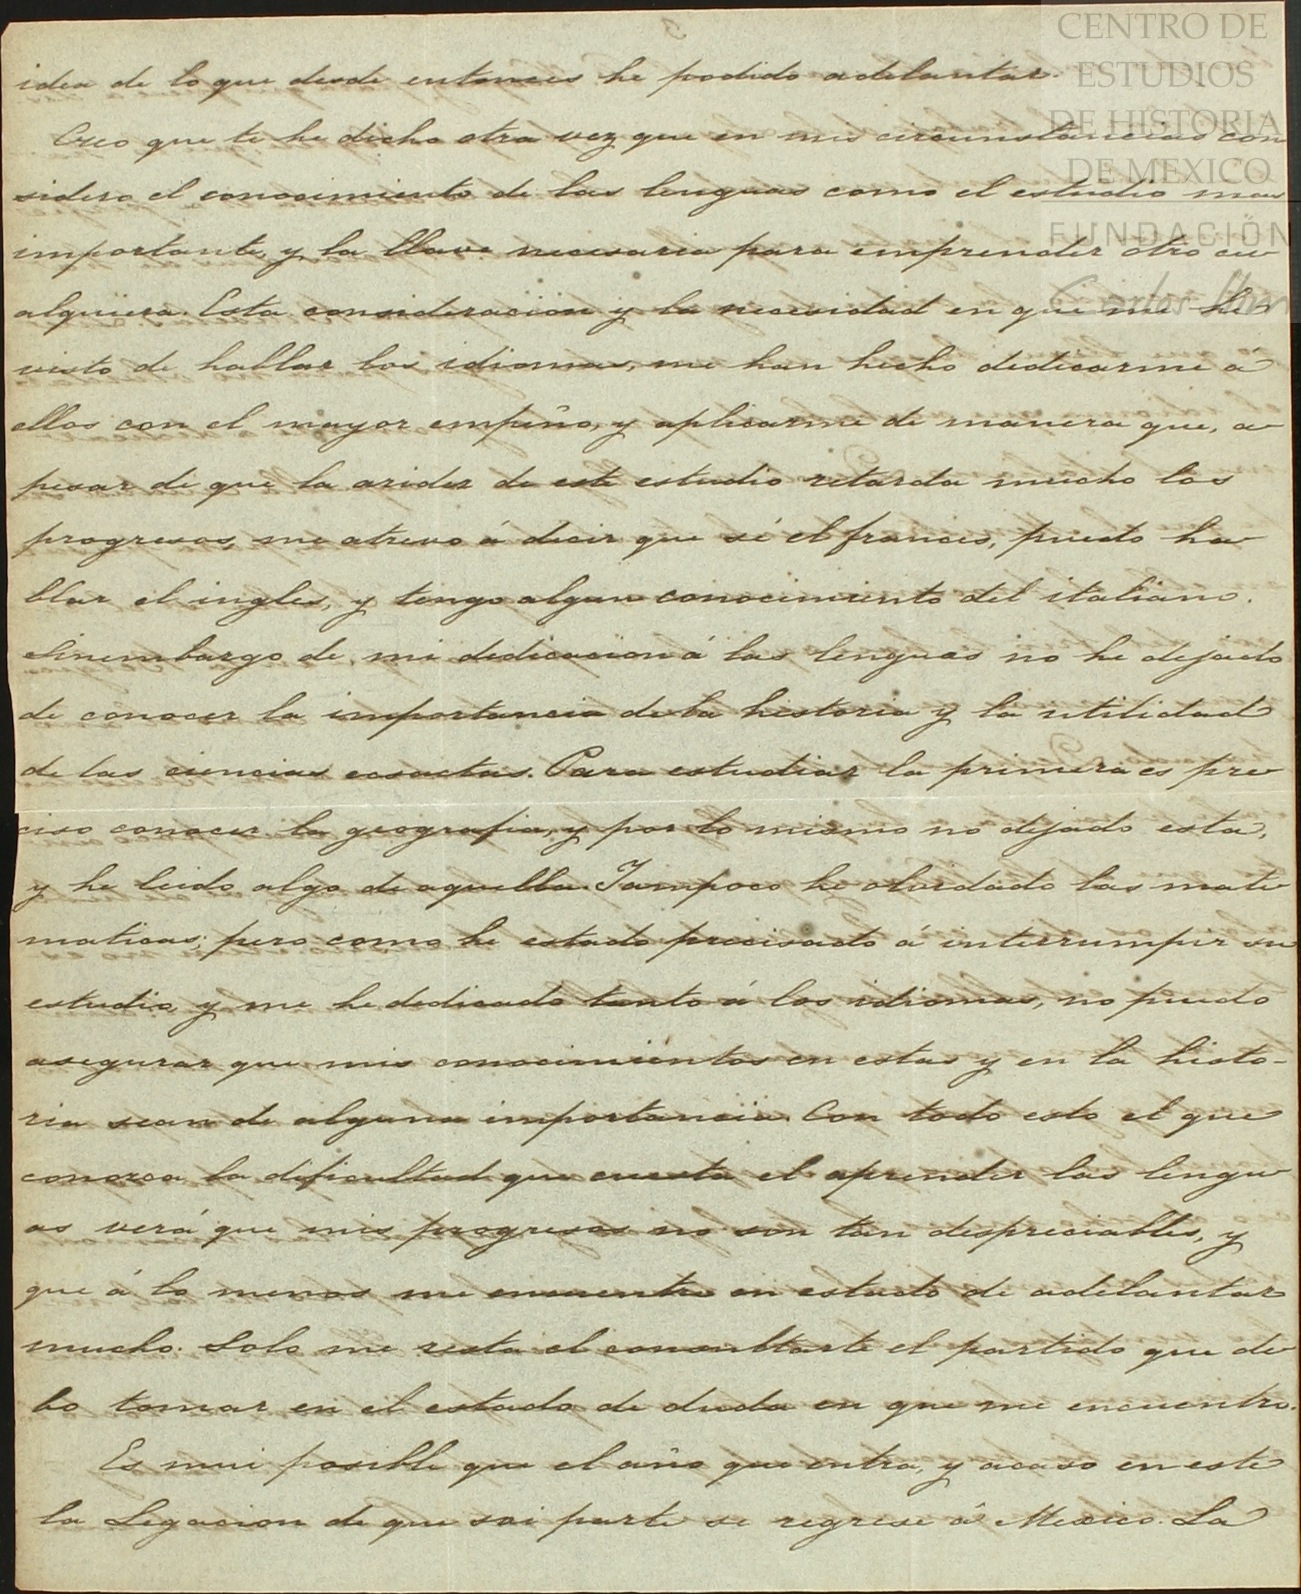 CENTRO DE
ESTUDIOS
DE HISTORIA
DE MEXICO
FUNDACIÓN
Carlos Slim
idea de lo que desde entonces he podido adelantar.
Creo que te he dicho otra vez que en mis circunstancias con
sidero el conocimiento de las lenguas como el estudio mas
importante, y la llave necesaria para emprender otro cu
alquiera. Esta consideracion y la necesidad en que me he
visto de hablar los idiomas, me han hecho dedicarme á
ellos con el mayor empeño, y aplicarme de manera que, a
pesar de que la aridez de este estudio retarda mucho los
progresos, me atrevo á decir que sé el frances, puedo ha
blar el ingles, y tengo algun conocimiento del italiano.
Sinembargo de mi dedicacion á las lenguas no he dejado
de conocer la importancia de la historia y la utilidad
de las ciencias ecsactas. Para estudiar la primera es pre
ciso conocer la geografia, y por lo mismo no dejado esta,
y he leido algo de aquella. Tampoco he olvidado las mate
maticas; pero como he estado precisado á interrumpir su
estudio, y me he dedicado tanto á los idiomas, no puedo
asegurar que mis conocimientos en estas y en la histo-
ria sean de alguna importancia. Con todo esto el que
conozca la dificultad que cuesta el aprender las lengu
as verá que mis progresos no son tan despreciables, y
que á lo menos me encuentro en estado de adelantar
mucho. Solo me resta el consultarte el partido que de
bo tomar en el estado de duda en que me encuentro.
Es mui posible que el año que entra, y acaso en este
la Legacion de que soi parte se regrese á Mexico. La